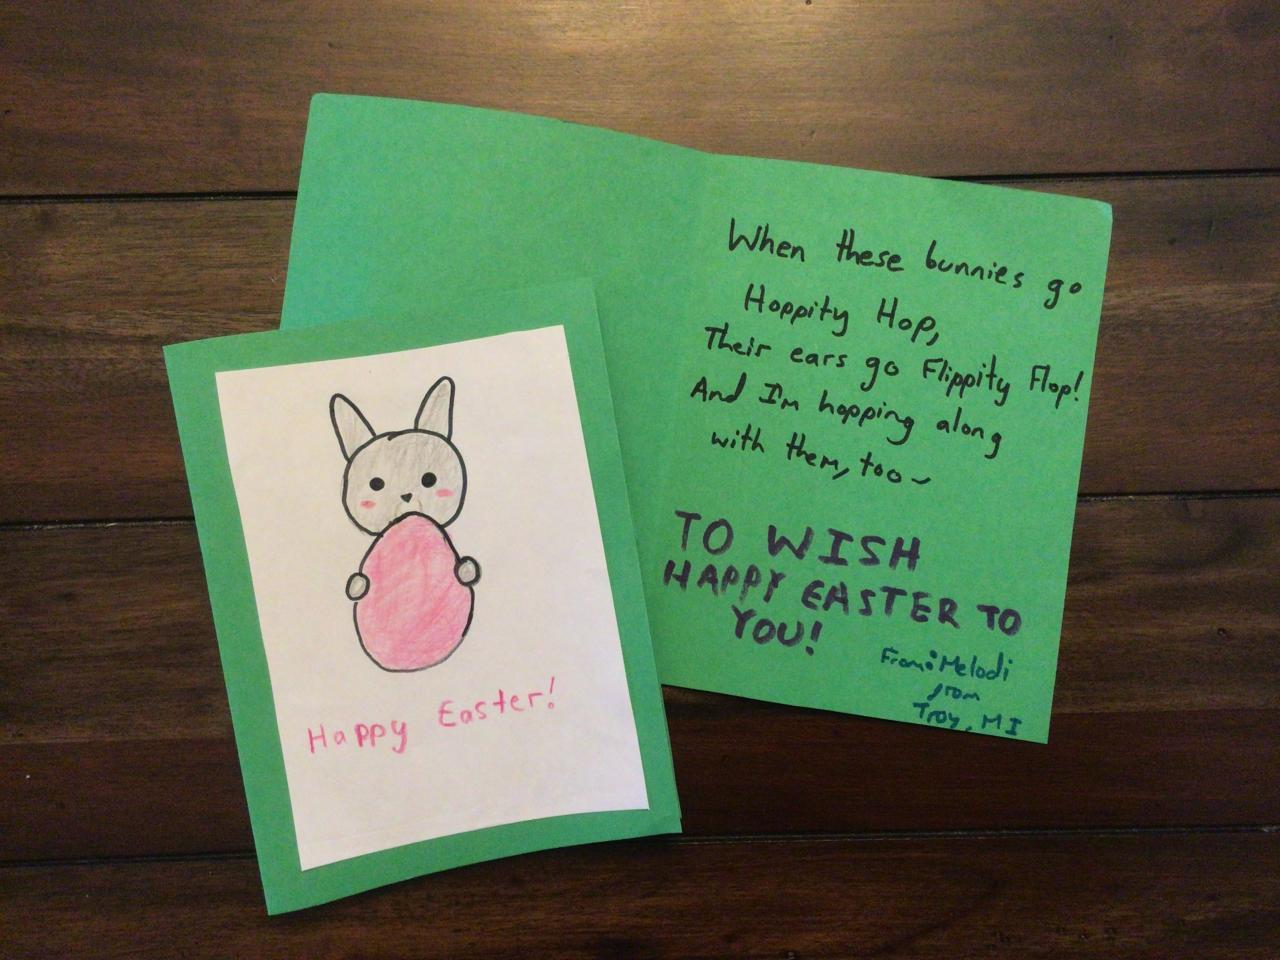 Happy Easter!
When these bunnies go
Hoppity Hop,
Their ears go Flippity Flop!
And I'm hopping along
with them, too~
TO WISH
HAPPY EASTER TO
YOU!
From: Melodi
from
Troy, MI